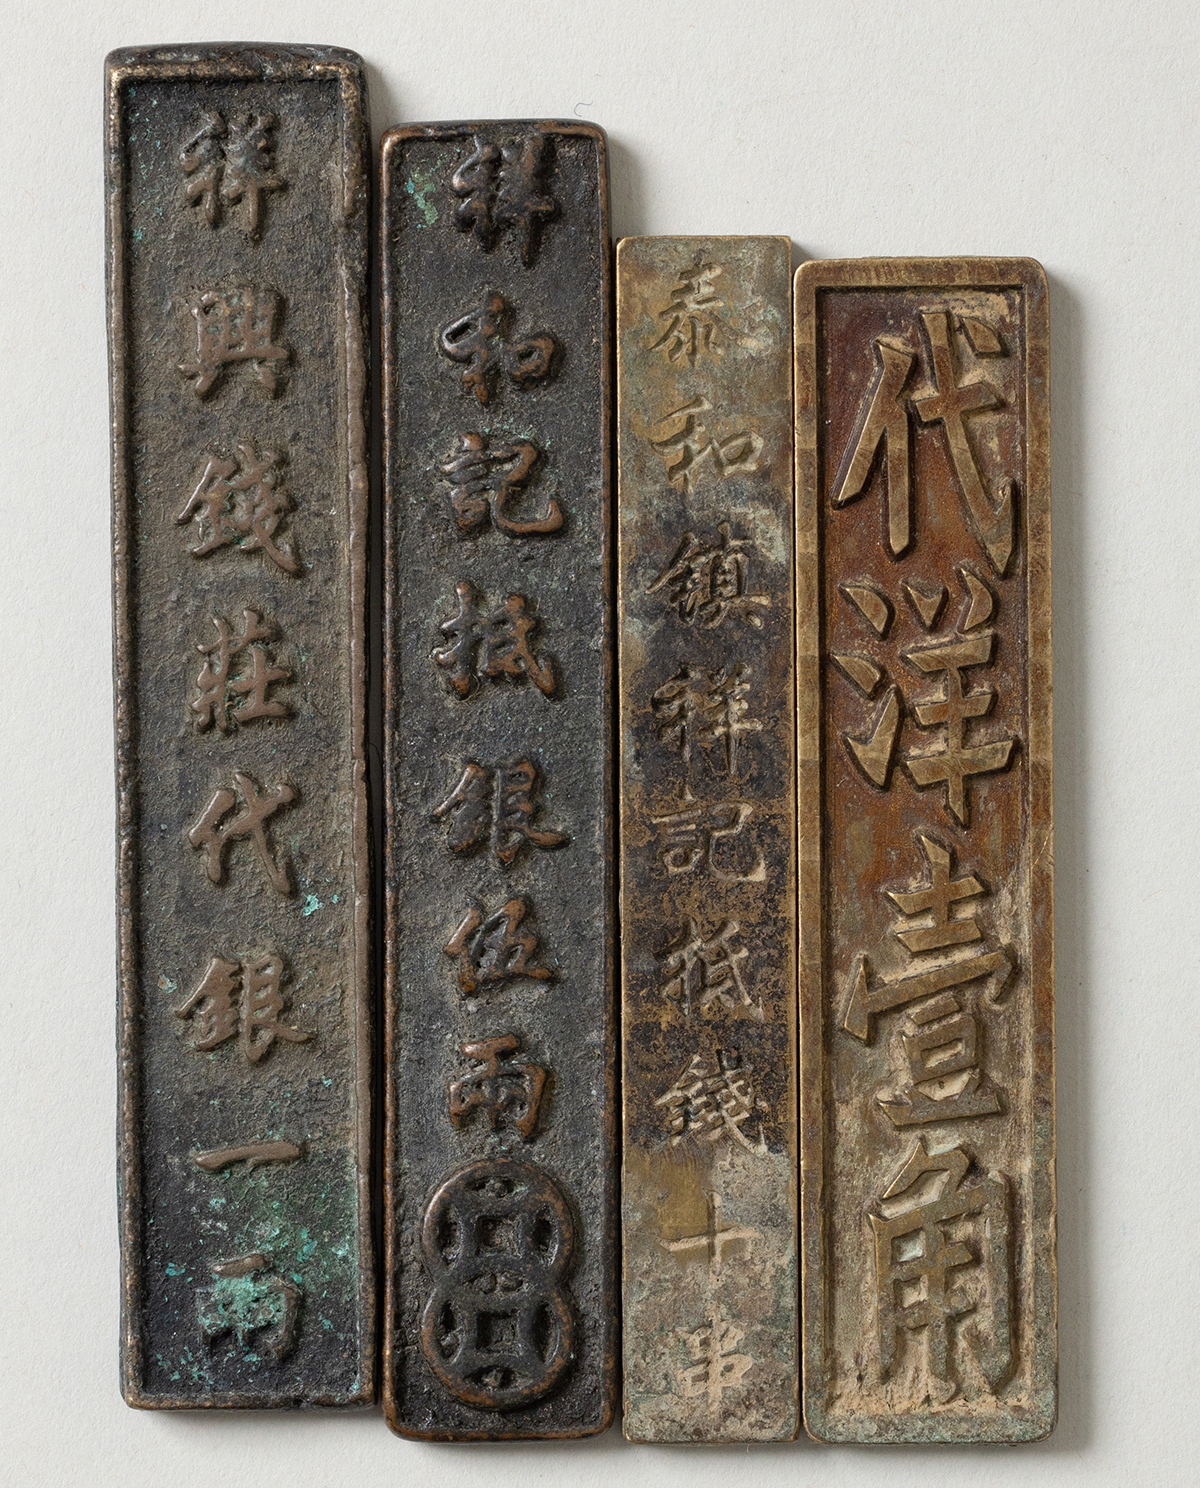 祥興錢莊代銀一兩
祥和記抵銀伍兩
泰和鎮祥記抵錢十串
代洋壹角